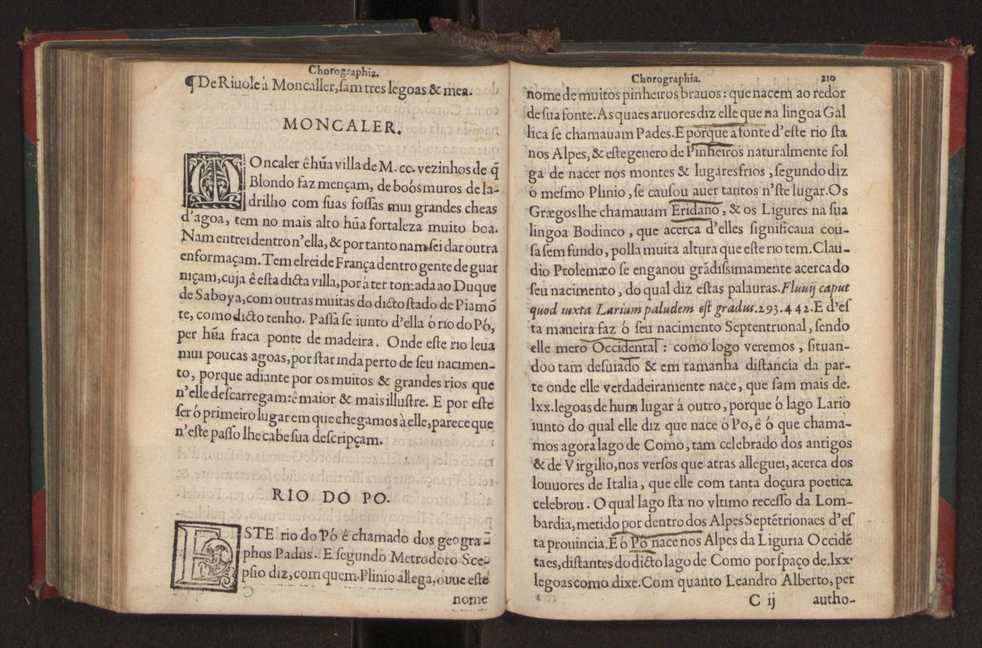 Chorographia.
¶ De Riuole à Moncaller, sam tres legoas & mea.
MONCALER.
MOncaler ê hũa villa de M. cc. vezinhos de q̃
Blondo faz mençam, de boõs muros de la-
drilho com suas fossas mui grandes cheas
d'agoa, tem no mais alto hũa fortaleza muito boa.
Nam entrei dentro n'ella, & por tanto nam sei dar outra
enformaçam. Tem elrei de França dentro gente de guar
niçam, cuja ê esta dicta villa, por à ter tomada ao Duque
de Saboya, com outras muitas do dicto stado de Piamõ
te, como dicto tenho. Passa se iunto d'ella ó rio do Pó,
per hũa fraca ponte de madeira. Onde este rio leua
mui poucas agoas, por star inda perto de seu nacimen-
to, porque adiante por os muitos & grandes rios que
n'elle descarregam: ê maior & mais illustre. E por este
ser ó primeiro lugar em que chegamos à elle, parece que
n'este passo lhe cabe sua descripçam.
RIO DO PO.
ESTE rio do Pó ê chamado dos geogra-
phos Padus. E segundo Metrodoro Sce-
psio diz, com quem Plinio allega, ouue este
nome
Chorographia. 210
nome de muitos pinheiros brauos: que nacem ao redor
de sua fonte. As quaes aruores diz elle que na lingoa Gal
lica se chamauam Pades. E porque a fonte d'este rio sta
nos Alpes, & este genero de Pinheiros naturalmente fol
ga de nacer nos montes & lugares frios, segundo diz
o mesmo Plinio, se causou auer tantos n'ste lugar. Os
Grægos lhe chamauam Eridano, & os Ligures na sua
lingoa Bodinco, que acerca d'elles significaua cou-
sa sem fundo, polla muita altura que este rio tem. Clau-
dio Ptolemæo se enganou grãdissimamente acerca do
seu nacimento, do qual diz estas palauras. Fluuij caput
quod iuxta Larium paludem est gradus. 293. 442. E d'es
ta maneira faz ó seu nacimento Septentrional, sendo
elle mero Occidental: como logo veremos, situan-
doo tam desuiado & em tamanha distancia da par-
te onde elle verdadeiramente nace, que sam mais de.
lxx. legoas de hum lugar á outro, porque ó lago Lario
iunto do qual elle diz que nace ó Po, é ó que chama-
mos agora lago de Como, tam celebrado dos antigos
& de Virgilio, nos versos que atras alleguei, acerca dos
louuores de Italia, que elle com tanta doçura poetica
celebrou. O qual lago sta no vltimo recesso da Lom-
bardia, metido por dentro dos Alpes Septẽtrionaes d'es
ta prouincia. E ó Po nace nos Alpes da Liguria Occidẽ
taes, distantes do dicto lago de Como por spaço de. lxx.
legoas como dixe. Com quanto Leandro Alberto, per
C ij autho-